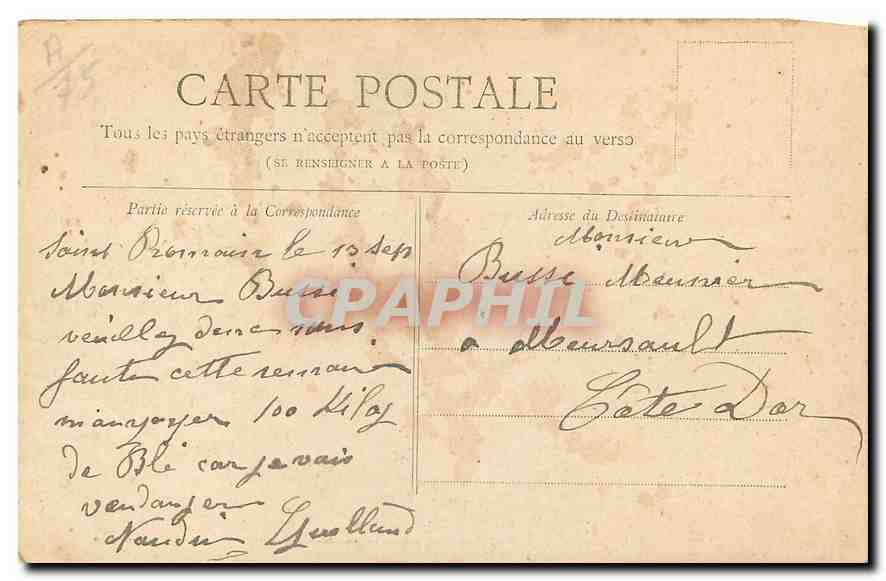 A/75
CARTE POSTALE
Tous les pays étrangers n'acceptent pas la correspondance au verso
(SE RENSEIGNER A LA POSTE)
Partie réservée à la Correspondance
Saint Romain le 13 Sep
Monsieur Bussi
veuillez donc sans
faute cette semaine
m'anvoyer 100 Kilog
de Blé car je vais
vendanger
Naudin
Adresse du Destinataire
Monsieur
Bussi Meunier
à Meursault
Côte Dor
CPAPHIL